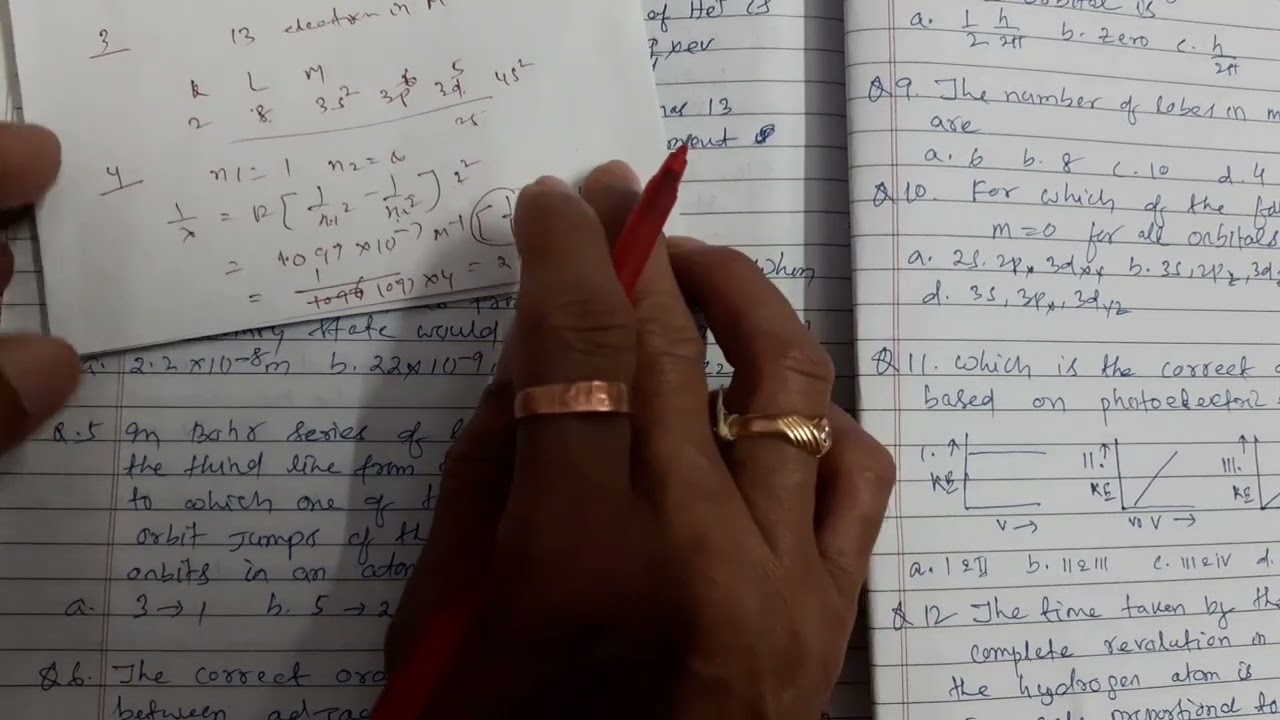 3 13 electron in M
K L M
2 8 3s² 3p⁶ 3d⁵ 4s²
25
4 n1 = 1 n2 = ∞
1/λ = R [ 1/n1² - 1/n2² ] 2²
= 1.097 × 10⁻⁷ m⁻¹
= 1/1097 × 4 = 2
of He⁺ is
per
has 13
ment
when
State would
a. 2.2 × 10⁻⁸m b. 22 × 10⁻⁹
Q.5 In Bohr series of
the third line from
to which one of
orbit jumps of th
orbits in an atom
a. 3 → 1 b. 5 → 2
Q6. The correct ord
between adja
is
a. 1/2 h/2π b. zero c. h/2π
Q9. The number of lobes in m
are
a. 6 b. 8 c. 10 d. 4
Q10. For which of the fo
m=0 for all orbitals
a. 2s, 2px, 3dxy b. 3s, 2pz, 3d
d. 3s, 3px, 3dyz
Q11. which is the correct
based on photoelectric
I. KE V→ II. KE v0 V→ III. KE
a. I & II b. II & III c. III & IV d.
Q12 The time taken by the
complete revolution in
the hydrogen atom is
proportional to